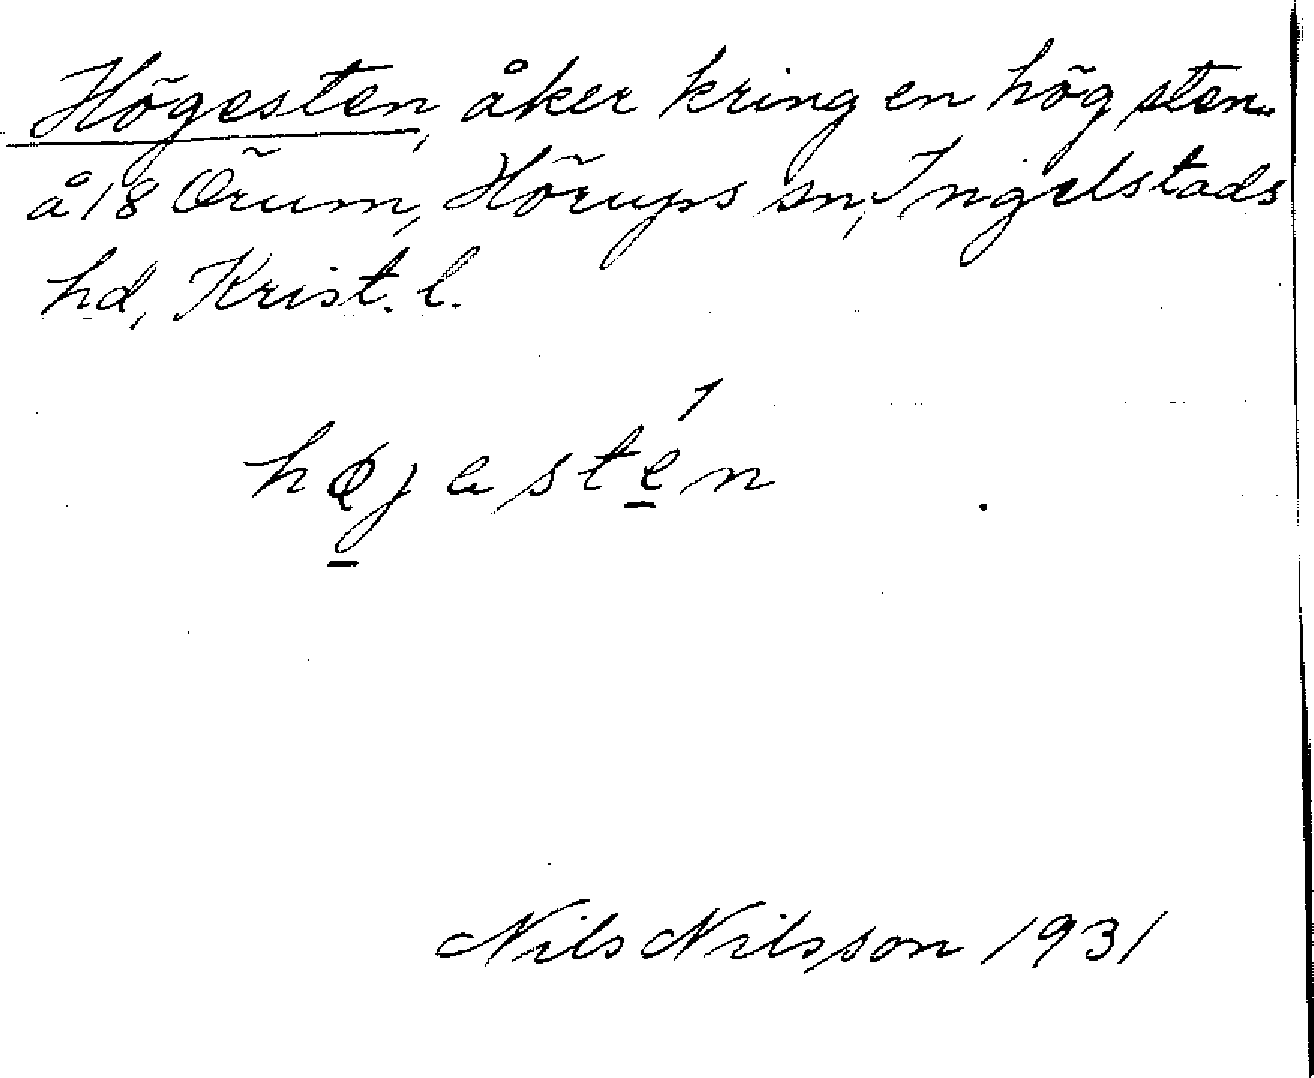 Högesten, åker kring en hög sten
å 18 Örum, Hörups sn, Ingelstads
hd, Krist. l.
højastén
Nils Nilsson 1931